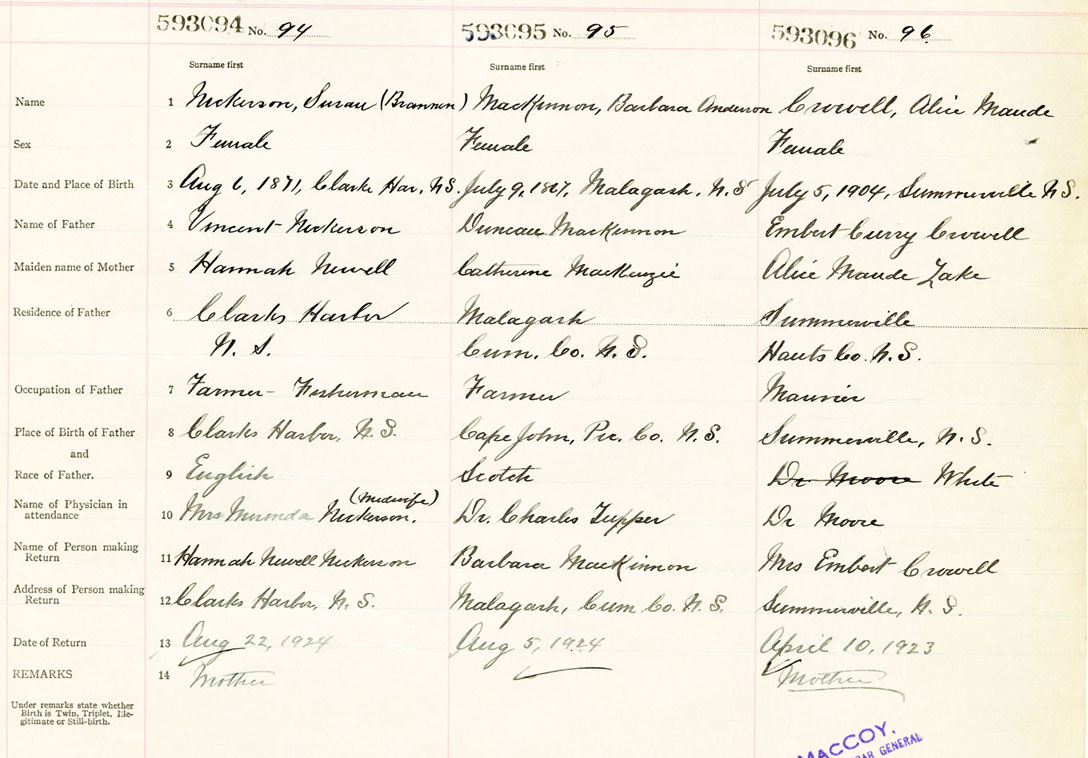 593094 No. 94 593095 No. 95 593096 No. 96
Surname first Surname first Surname first
Name 1 Nickerson, Susan (Brannen) MacKinnon, Barbara Anderson Crowell, Alice Maude
Sex 2 Female Female Female
Date and Place of Birth 3 Aug 6, 1871, Clarks Har, N.S. July 9, 1867, Malagash, N.S July 5, 1904, Summerville N.S.
Name of Father 4 Vincent Nickerson Duncan MacKinnon Embert Curry Crowell
Maiden name of Mother 5 Hannah Newell Catherine MacKenzie Alice Maude Lake
Residence of Father 6 Clarks Harbor Malagash Summerville
N. S. Cum. Co. N.S. Hants Co. N.S.
Occupation of Father 7 Farmer - Fisherman Farmer Mariner
Place of Birth of Father 8 Clarks Harbor, N.S. Cape John, Pic. Co. N.S. Summerville, N.S.
and
Race of Father. 9 English Scotch Dr Moore White
Name of Physician in (Midwife)
attendance 10 Mrs Nickerson. Dr. Charles Tupper Dr Moore
Name of Person making
Return 11 Hannah Newell Nickerson Barbara MacKinnon Mrs Embert Crowell
Address of Person making
Return 12 Clarks Harbor, N.S. Malagash, Cum Co. N.S. Summerville, N.S.
Date of Return 13 Aug 22, 1924 Aug 5, 1924 April 10, 1923
REMARKS 14 Mother Mother
Under remarks state whether
Birth is Twin, Triplet, Ille-
gitimate or Still-birth.
MACCOY,
GENERAL